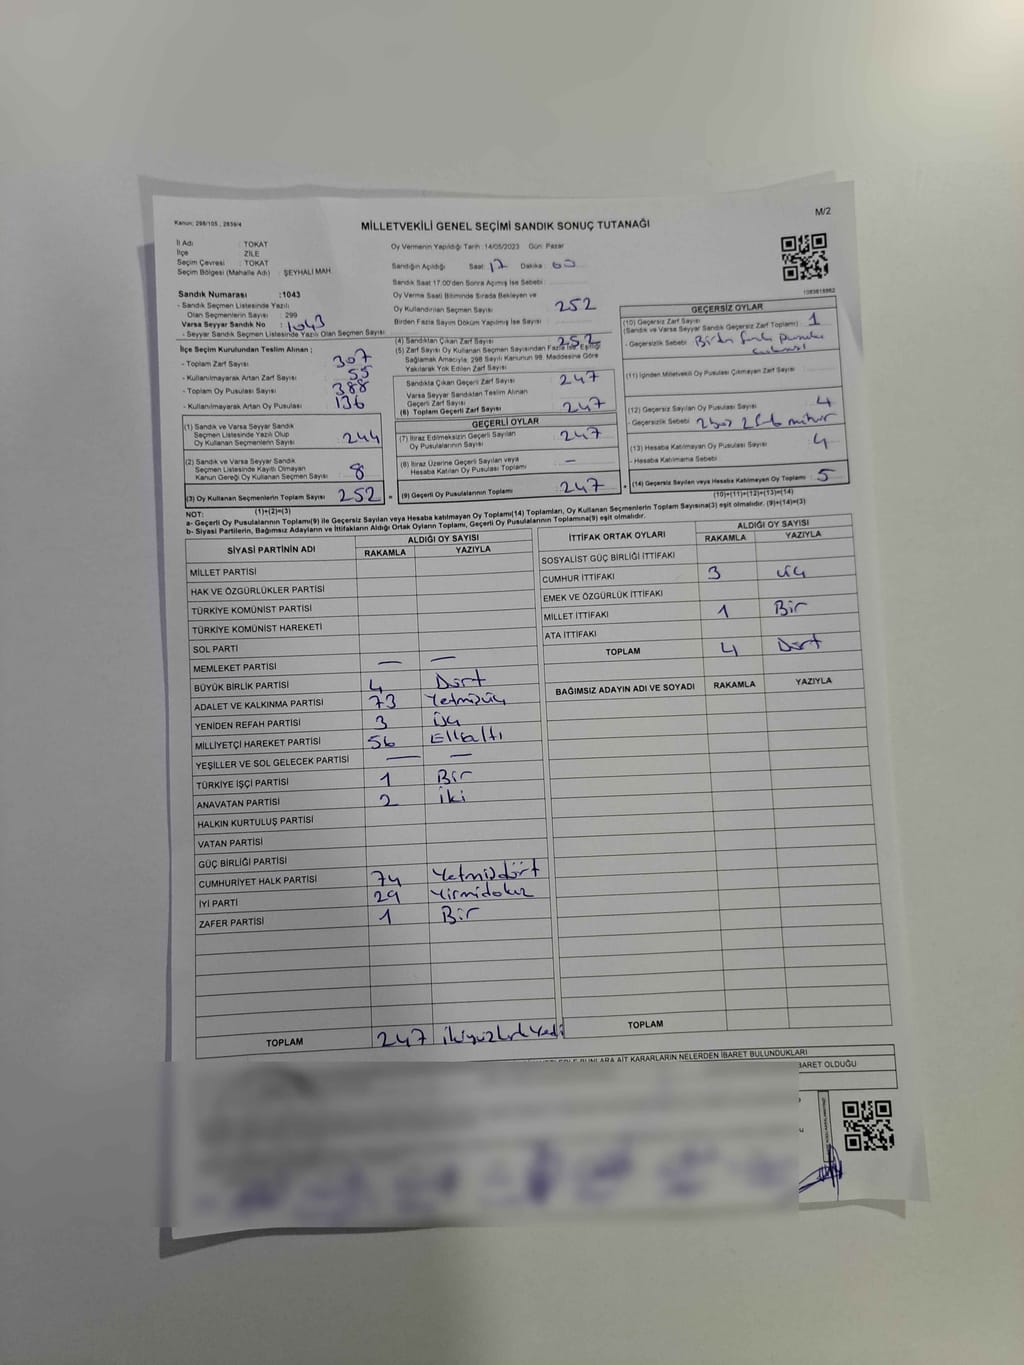 Kanun: 298/105 ; 2839/4
M/2
MİLLETVEKİLİ GENEL SEÇİMİ SANDIK SONUÇ TUTANAĞI
İl Adı : TOKAT
İlçe : ZİLE
Seçim Çevresi : TOKAT
Seçim Bölgesi (Mahalle Adı) : ŞEYHALİ MAH.
Sandık Numarası :1043
- Sandık Seçmen Listesinde Yazılı
Olan Seçmenlerin Sayısı : 299
Varsa Seyyar Sandık No : 1043
- Seyyar Sandık Seçmen Listesinde Yazılı Olan Seçmen Sayısı :
İlçe Seçim Kurulundan Teslim Alınan ;
- Toplam Zarf Sayısı 307
- Kullanılmayarak Artan Zarf Sayısı 55
- Toplam Oy Pusulası Sayısı 388
- Kullanılmayarak Artan Oy Pusulası 136
(1) Sandık ve Varsa Seyyar Sandık
Seçmen Listesinde Yazılı Olup
Oy Kullanan Seçmenlerin Sayısı 244
(2) Sandık ve Varsa Seyyar Sandık
Seçmen Listesinde Kayıtlı Olmayan
Kanun Gereği Oy Kullanan Seçmen Sayısı 8
(3) Oy Kullanan Seçmenlerin Toplam Sayısı 252
(1)+(2)=(3)
Oy Vermenin Yapıldığı Tarih :14/05/2023 Gün: Pazar
Sandığın Açıldığı Saat: 17 Dakika:
Sandık Saat 17.00'den Sonra Açılmış İse Sebebi
Oy Verme Saati Bitiminde Sırada Bekleyen ve
Oy Kullandırılan Seçmen Sayısı 252
Birden Fazla Sayım Döküm Yapılmış İse Sayısı
(4) Sandıktan Çıkan Zarf Sayısı 252
(5) Zarf Sayısı Oy Kullanan Seçmen Sayısından Fazla İse, Eşitliği
Sağlamak Amacıyla, 298 Sayılı Kanunun 98. Maddesine Göre
Yakılarak Yok Edilen Zarf Sayısı
Sandıkta Çıkan Geçerli Zarf Sayısı 247
Varsa Seyyar Sandıktan Teslim Alınan
Geçerli Zarf Sayısı
(6) Toplam Geçerli Zarf Sayısı 247
GEÇERLİ OYLAR
(7) İtiraz Edilmeksizin Geçerli Sayılan
Oy Pusulalarının Sayısı 247
(8) İtiraz Üzerine Geçerli Sayılan veya
Hesaba Katılan Oy Pusulası Toplamı —
(9) Geçerli Oy Pusulalarının Toplamı 247
1083618982
GEÇERSİZ OYLAR
(10) Geçersiz Zarf Sayısı
(Sandık ve Varsa Seyyar Sandık Geçersiz Zarf Toplamı) 1
- Geçersizlik Sebebi
(11) İçinden Milletvekili Oy Pusulası Çıkmayan Zarf Sayısı
(12) Geçersiz Sayılan Oy Pusulası Sayısı 4
- Geçersizlik Sebebi
(13) Hesaba Katılmayan Oy Pusulası Sayısı 4
- Hesaba Katılmama Sebebi
(14) Geçersiz Sayılan veya Hesaba Katılmayan Oy Toplamı 5
(10)+(11)+(12)+(13)=(14)
NOT:
a- Geçerli Oy Pusulalarının Toplamı(9) ile Geçersiz Sayılan veya Hesaba katılmayan Oy Toplamı(14) Toplamları, Oy Kullanan Seçmenlerin Toplam Sayısına(3) eşit olmalıdır. (9)+(14)=(3)
b- Siyasi Partilerin, Bağımsız Adayların ve İttifakların Aldığı Ortak Oyların Toplamı, Geçerli Oy Pusulalarının Toplamına(9) eşit olmalıdır.
SİYASİ PARTİNİN ADI ALDIĞI OY SAYISI
RAKAMLA YAZIYLA
MİLLET PARTİSİ
HAK VE ÖZGÜRLÜKLER PARTİSİ
TÜRKİYE KOMÜNİST PARTİSİ
TÜRKİYE KOMÜNİST HAREKETİ
SOL PARTİ
MEMLEKET PARTİSİ — —
BÜYÜK BİRLİK PARTİSİ 4 Dört
ADALET VE KALKINMA PARTİSİ 73 Yetmişüç
YENİDEN REFAH PARTİSİ 3 Üç
MİLLİYETÇİ HAREKET PARTİSİ 56 Ellialtı
YEŞİLLER VE SOL GELECEK PARTİSİ — —
TÜRKİYE İŞÇİ PARTİSİ 1 Bir
ANAVATAN PARTİSİ 2 İki
HALKIN KURTULUŞ PARTİSİ
VATAN PARTİSİ
GÜÇ BİRLİĞİ PARTİSİ
CUMHURİYET HALK PARTİSİ 74 Yetmişdört
İYİ PARTİ 29 Yirmidokuz
ZAFER PARTİSİ 1 Bir
TOPLAM 247 ikiyüzkırkYedi
İTTİFAK ORTAK OYLARI ALDIĞI OY SAYISI
RAKAMLA YAZIYLA
SOSYALİST GÜÇ BİRLİĞİ İTTİFAKI
CUMHUR İTTİFAKI 3 Üç
EMEK VE ÖZGÜRLÜK İTTİFAKI
MİLLET İTTİFAKI 1 Bir
ATA İTTİFAKI
TOPLAM 4 Dört
BAĞIMSIZ ADAYIN ADI VE SOYADI RAKAMLA YAZIYLA
TOPLAM
BUNLARA AİT KARARLARIN NELERDEN İBARET BULUNDUKLARI
İBARET OLDUĞU